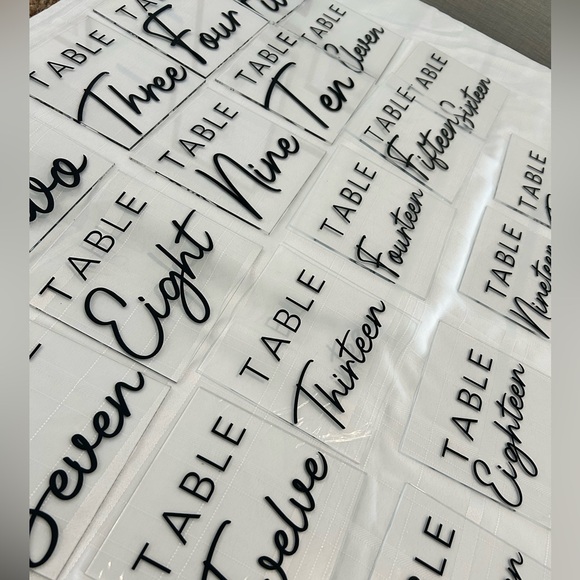 TABLE
Three
TABLE
Four
TABLE
Eleven
TABLE
Ten
TABLE
Nine
TABLE
Fifteen
TABLE
Sixteen
TABLE
Fourteen
TABLE
Eight
TABLE
Thirteen
TABLE
TABLE
Nineteen
TABLE
Eighteen
TABLE
Twelve
TABLE